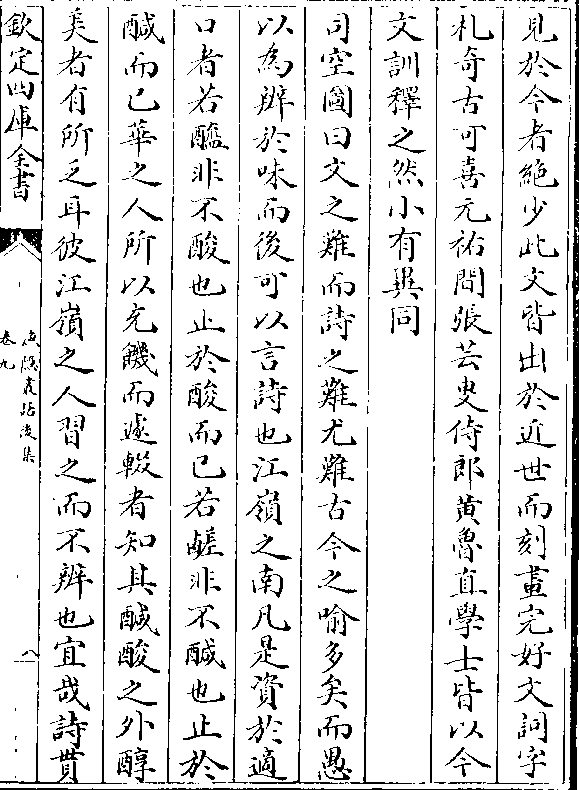 見於今者絶少此文皆出於近世而刻畫完好文詞字
札奇古可喜元祐間張芸叟侍郎黄魯直學士皆以今
文訓釋之然小有異同
司空圖曰文之難而詩之難尤難古今之喻多矣而愚
以為辨於味而後可以言詩也江嶺之南凡是資於適
口者若醯非不酸也止於酸而已若鹺非不鹹也止於
鹹而已華之人所以充饑而遽輟者知其鹹酸之外醇
美者有所乏耳彼江嶺之人習之而不辨也宜哉詩貫
欽定四庫全書
漁隱叢話後集
卷九
八